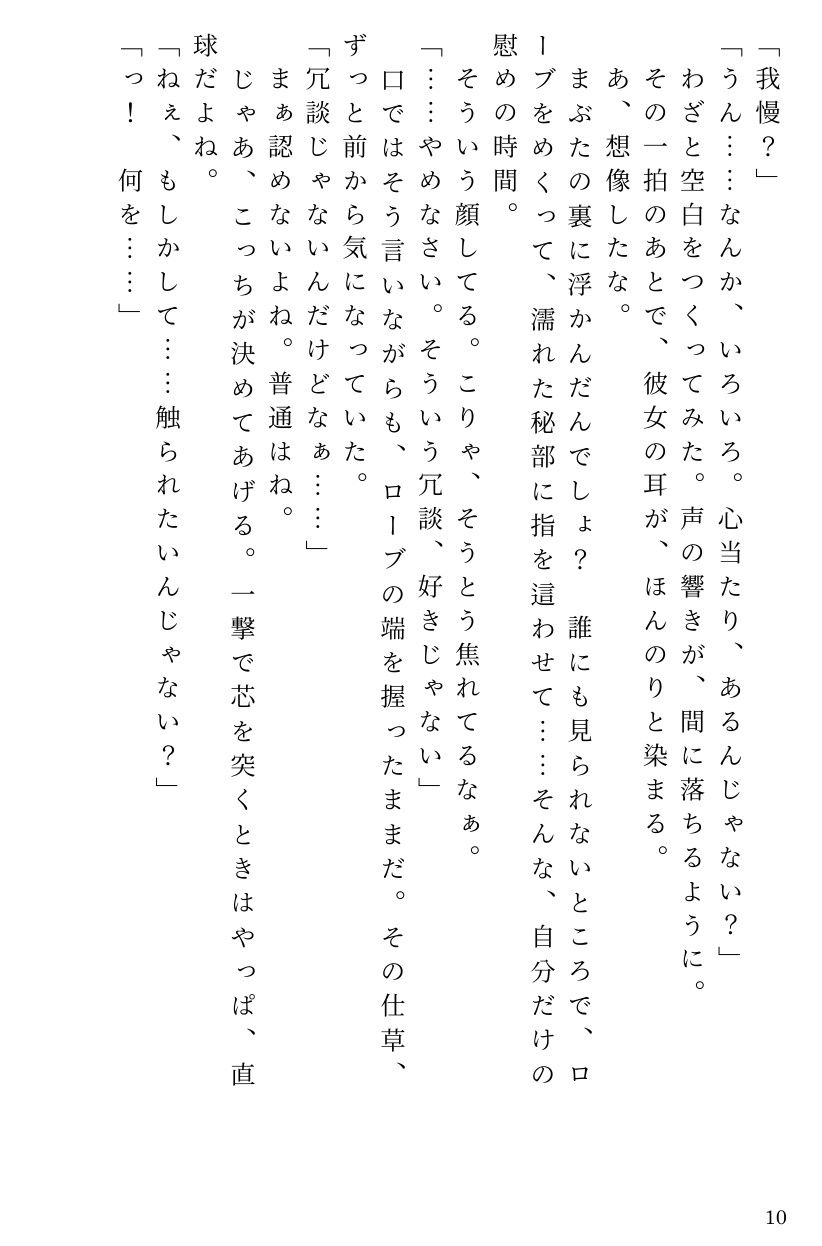 「我慢？」
「うん……なんか、いろいろ。心当たり、あるんじゃない？」
　わざと空白をつくってみた。声の響きが、間に落ちるように。
　その一拍のあとで、彼女の耳が、ほんのりと染まる。
　あ、想像したな。
　まぶたの裏に浮かんだんでしょ？　誰にも見られないところで、ロ
ーブをめくって、濡れた秘部に指を這わせて……そんな、自分だけの
慰めの時間。
　そういう顔してる。こりゃ、そうとう焦れてるなぁ。
「……やめなさい。そういう冗談、好きじゃない」
　口ではそう言いながらも、ローブの端を握ったままだ。その仕草、
ずっと前から気になっていた。
「冗談じゃないんだけどなぁ……」
　まぁ認めないよね。普通はね。
　じゃあ、こっちが決めてあげる。一撃で芯を突くときはやっぱ、直
球だよね。
「ねぇ、もしかして……触られたいんじゃない？」
「っ！　何を……」
10